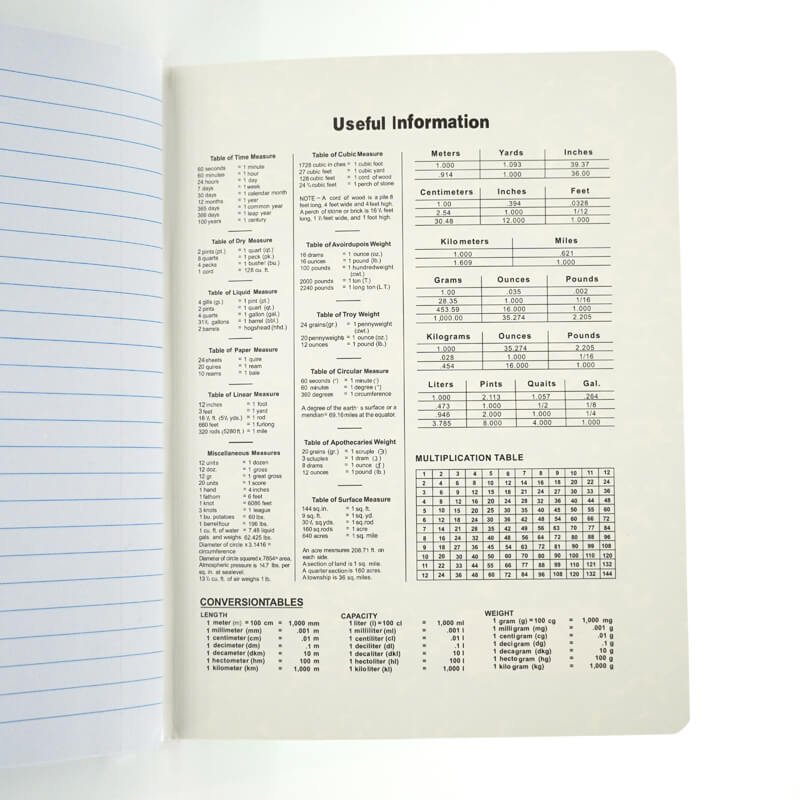 Useful Information
Table of Time Measure
60 seconds = 1 minute
60 minutes = 1 hour
24 hours = 1 day
7 days = 1 week
30 days = 1 calendar month
12 months = 1 year
365 days = 1 common year
366 days = 1 leap year
100 years = 1 century
Table of Dry Measure
2 pints (pt.) = 1 quart (qt.)
8 quarts = 1 peck (pk.)
4 pecks = 1 busher (bu.)
1 cord = 128 cu. ft.
Table of Liquid Measure
4 gills (gi.) = 1 pint (pt.)
2 pints = 1 quart (qt.)
4 quarts = 1 gallon (gal.)
31½ gallons = 1 barrel (bbl.)
2 barrels = hogshead (hhd.)
Table of Paper Measure
24 sheets = 1 quire
20 quires = 1 ream
10 reams = 1 bale
Table of Linear Measure
12 inches = 1 foot
3 feet = 1 yard
16 ½ ft. (5½ yds.) = 1 rod
660 feet = 1 furlong
320 rods (5280 ft.) = 1 mile
Miscellaneous Measures
12 units = 1 dozen
12 doz. = 1 gross
12 gr. = 1 great gross
20 units = 1 score
1 hand = 4 inches
1 fathom = 6 feet
1 knot = 6086 feet
3 knots = 1 league
1 bu. potatoes = 60 lbs.
1 barrel flour = 196 lbs.
1 cu. ft. of water = 7.48 liquid
gals. and weighs 62.425 lbs.
Diameter of circle x 3.1416 =
circumference
Diameter of circle squared x .7854 = area,
Atmospheric pressure is 14.7 lbs. per
sq. in. at sealevel.
13 ½ cu. ft. of air weighs 1 lb.
Table of Cubic Measure
1728 cubic in ches = 1 cubic foot
27 cubic feet = 1 cubic yard
128 cubic feet = 1 cord of wood
24 ¾ cubic feet = 1 perch of stone
NOTE – A cord of wood is a pile 8
feet long, 4 feet wide and 4 feet high.
A perch of stone or brick is 16 ½ feet
long, 1 ½ feet wide, and 1 foot high.
Table of Avoirdupois Weight
16 drams = 1 ounce (oz.)
16 ounces = 1 pound (lb.)
100 pounds = 1 hundredweight
(cwt.)
2000 pounds = 1 ton (T.)
2240 pounds = 1 long ton (L.T.)
Table of Troy Weight
24 grains (gr.) = 1 pennyweight
(zwt.)
20 pennyweights = 1 ounce (oz.)
12 ounces = 1 pound (lb.)
Table of Circular Measure
60 seconds (") = 1 minute (')
60 minutes = 1 degree (°)
360 degrees = 1 circumference
A degree of the earth s surface or a
meridian = 69.16 miles at the equator.
Table of Apothecaries Weight
20 grains (gr.) = 1 scruple (℈)
3 scruples = 1 dram (ʒ)
8 drams = 1 ounce (℥)
12 ounces = 1 pound (lb.)
Table of Surface Measure
144 sq. in. = 1 sq. ft.
9 sq. ft. = 1 sq. yd.
30 ¼ sq. yds = 1 sq. rod
160 sq. rods = 1 acre
640 acres = 1 sq. mile
An acre measures 208.71 ft. on
each side.
A section of land is 1 sq. mile.
A quarter section is 160 acres.
A township is 36 sq. miles.
Meters Yards Inches
1.000 1.093 39.37
.914 1.000 36.00
Centimeters Inches Feet
1.00 .394 .0328
2.54 1.000 1/12
30.48 12.000 1.000
Kilometers Miles
1.000 .621
1.609 1.000
Grams Ounces Pounds
1.00 .035 .002
28.35 1.000 1/16
453.59 16.000 1.000
1,000.00 35.274 2.205
Kilograms Ounces Pounds
1.000 35.274 2.205
.028 1.000 1/16
.454 16.000 1.000
Liters Pints Quaits Gal.
1.000 2.113 1.057 .264
.473 1.000 1/2 1/8
.946 2.000 1.000 1/4
3.785 8.000 4.000 1.000
MULTIPLICATION TABLE
1 2 3 4 5 6 7 8 9 10 11 12
2 4 6 8 10 12 14 16 18 20 22 24
3 6 9 12 15 18 21 24 27 30 33 36
4 8 12 16 20 24 28 32 36 40 44 48
5 10 15 20 25 30 35 40 45 50 55 60
6 12 18 24 30 36 42 48 54 60 66 72
7 14 21 28 35 42 49 56 63 70 77 84
8 16 24 32 40 48 56 64 72 80 88 96
9 18 27 36 45 54 63 72 81 90 99 108
10 20 30 40 50 60 70 80 90 100 110 120
11 22 33 44 55 66 77 88 99 110 121 132
12 24 36 48 60 72 84 96 108 120 132 144
CONVERSIONTABLES
LENGTH
1 meter (m) = 100 cm = 1,000 mm
1 millimeter (mm) = .001 m
1 centimeter (cm) = .01 m
1 decimeter (dm) = .1 m
1 decameter (dkm) = 10 m
1 hectometer (hm) = 100 m
1 kilometer (km) = 1,000 m
CAPACITY
1 liter (l) = 100 cl = 1,000 ml
1 milliliter (ml) = .001 l
1 centiliter (cl) = .01 l
1 deciliter (dl) = .1 l
1 decaliter (dkl) = 10 l
1 hectoliter (hl) = 100 l
1 kiloliter (kl) = 1,000 l
WEIGHT
1 gram (g) = 100 cg = 1,000 mg
1 milligram (mg) = .001 g
1 centigram (cg) = .01 g
1 decigram (dg) = .1 g
1 decagram (dkg) = 10 g
1 hectogram (hg) = 100 g
1 kilogram (kg) = 1,000 g